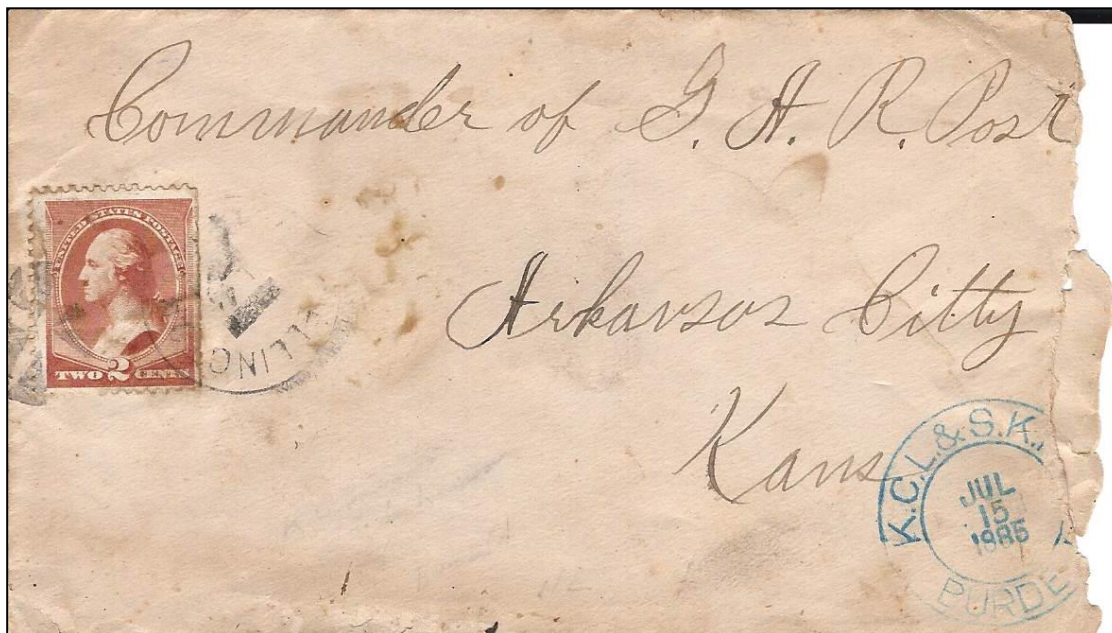 Commander of G. A. R. Post
Arkansas Citty
Kans
UNITED STATES POSTAGE
TWO 2 CENTS
K.C.L.&S.K.
JUL
15
1885